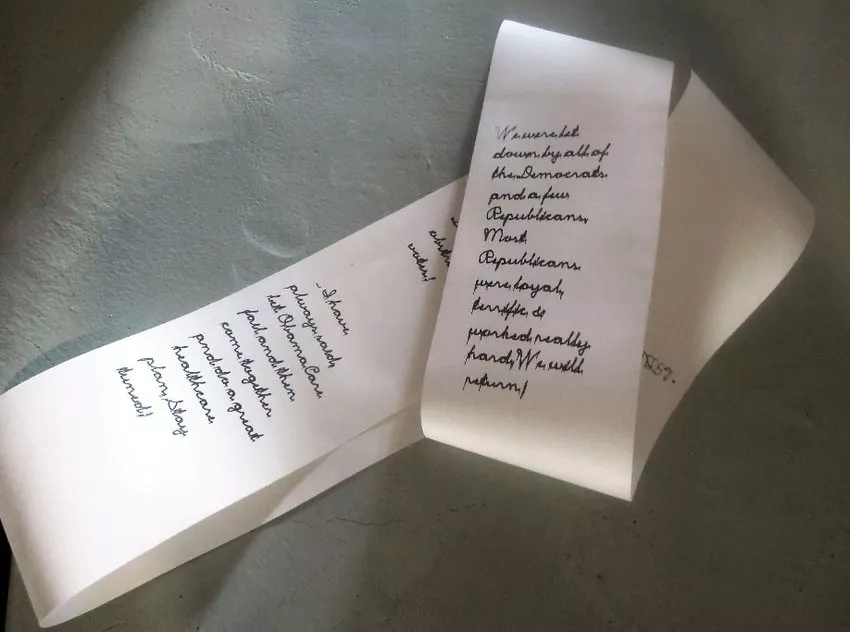 We were let
down by all of
the Democrats
and a few
Republicans.
Most
Republicans
were loyal,
terrific &
worked really
hard. We will
return!
voters!
- I have
always said,
let ObamaCare
fail and then
come together
and do a great
healthcare
plan. Stay
tuned!